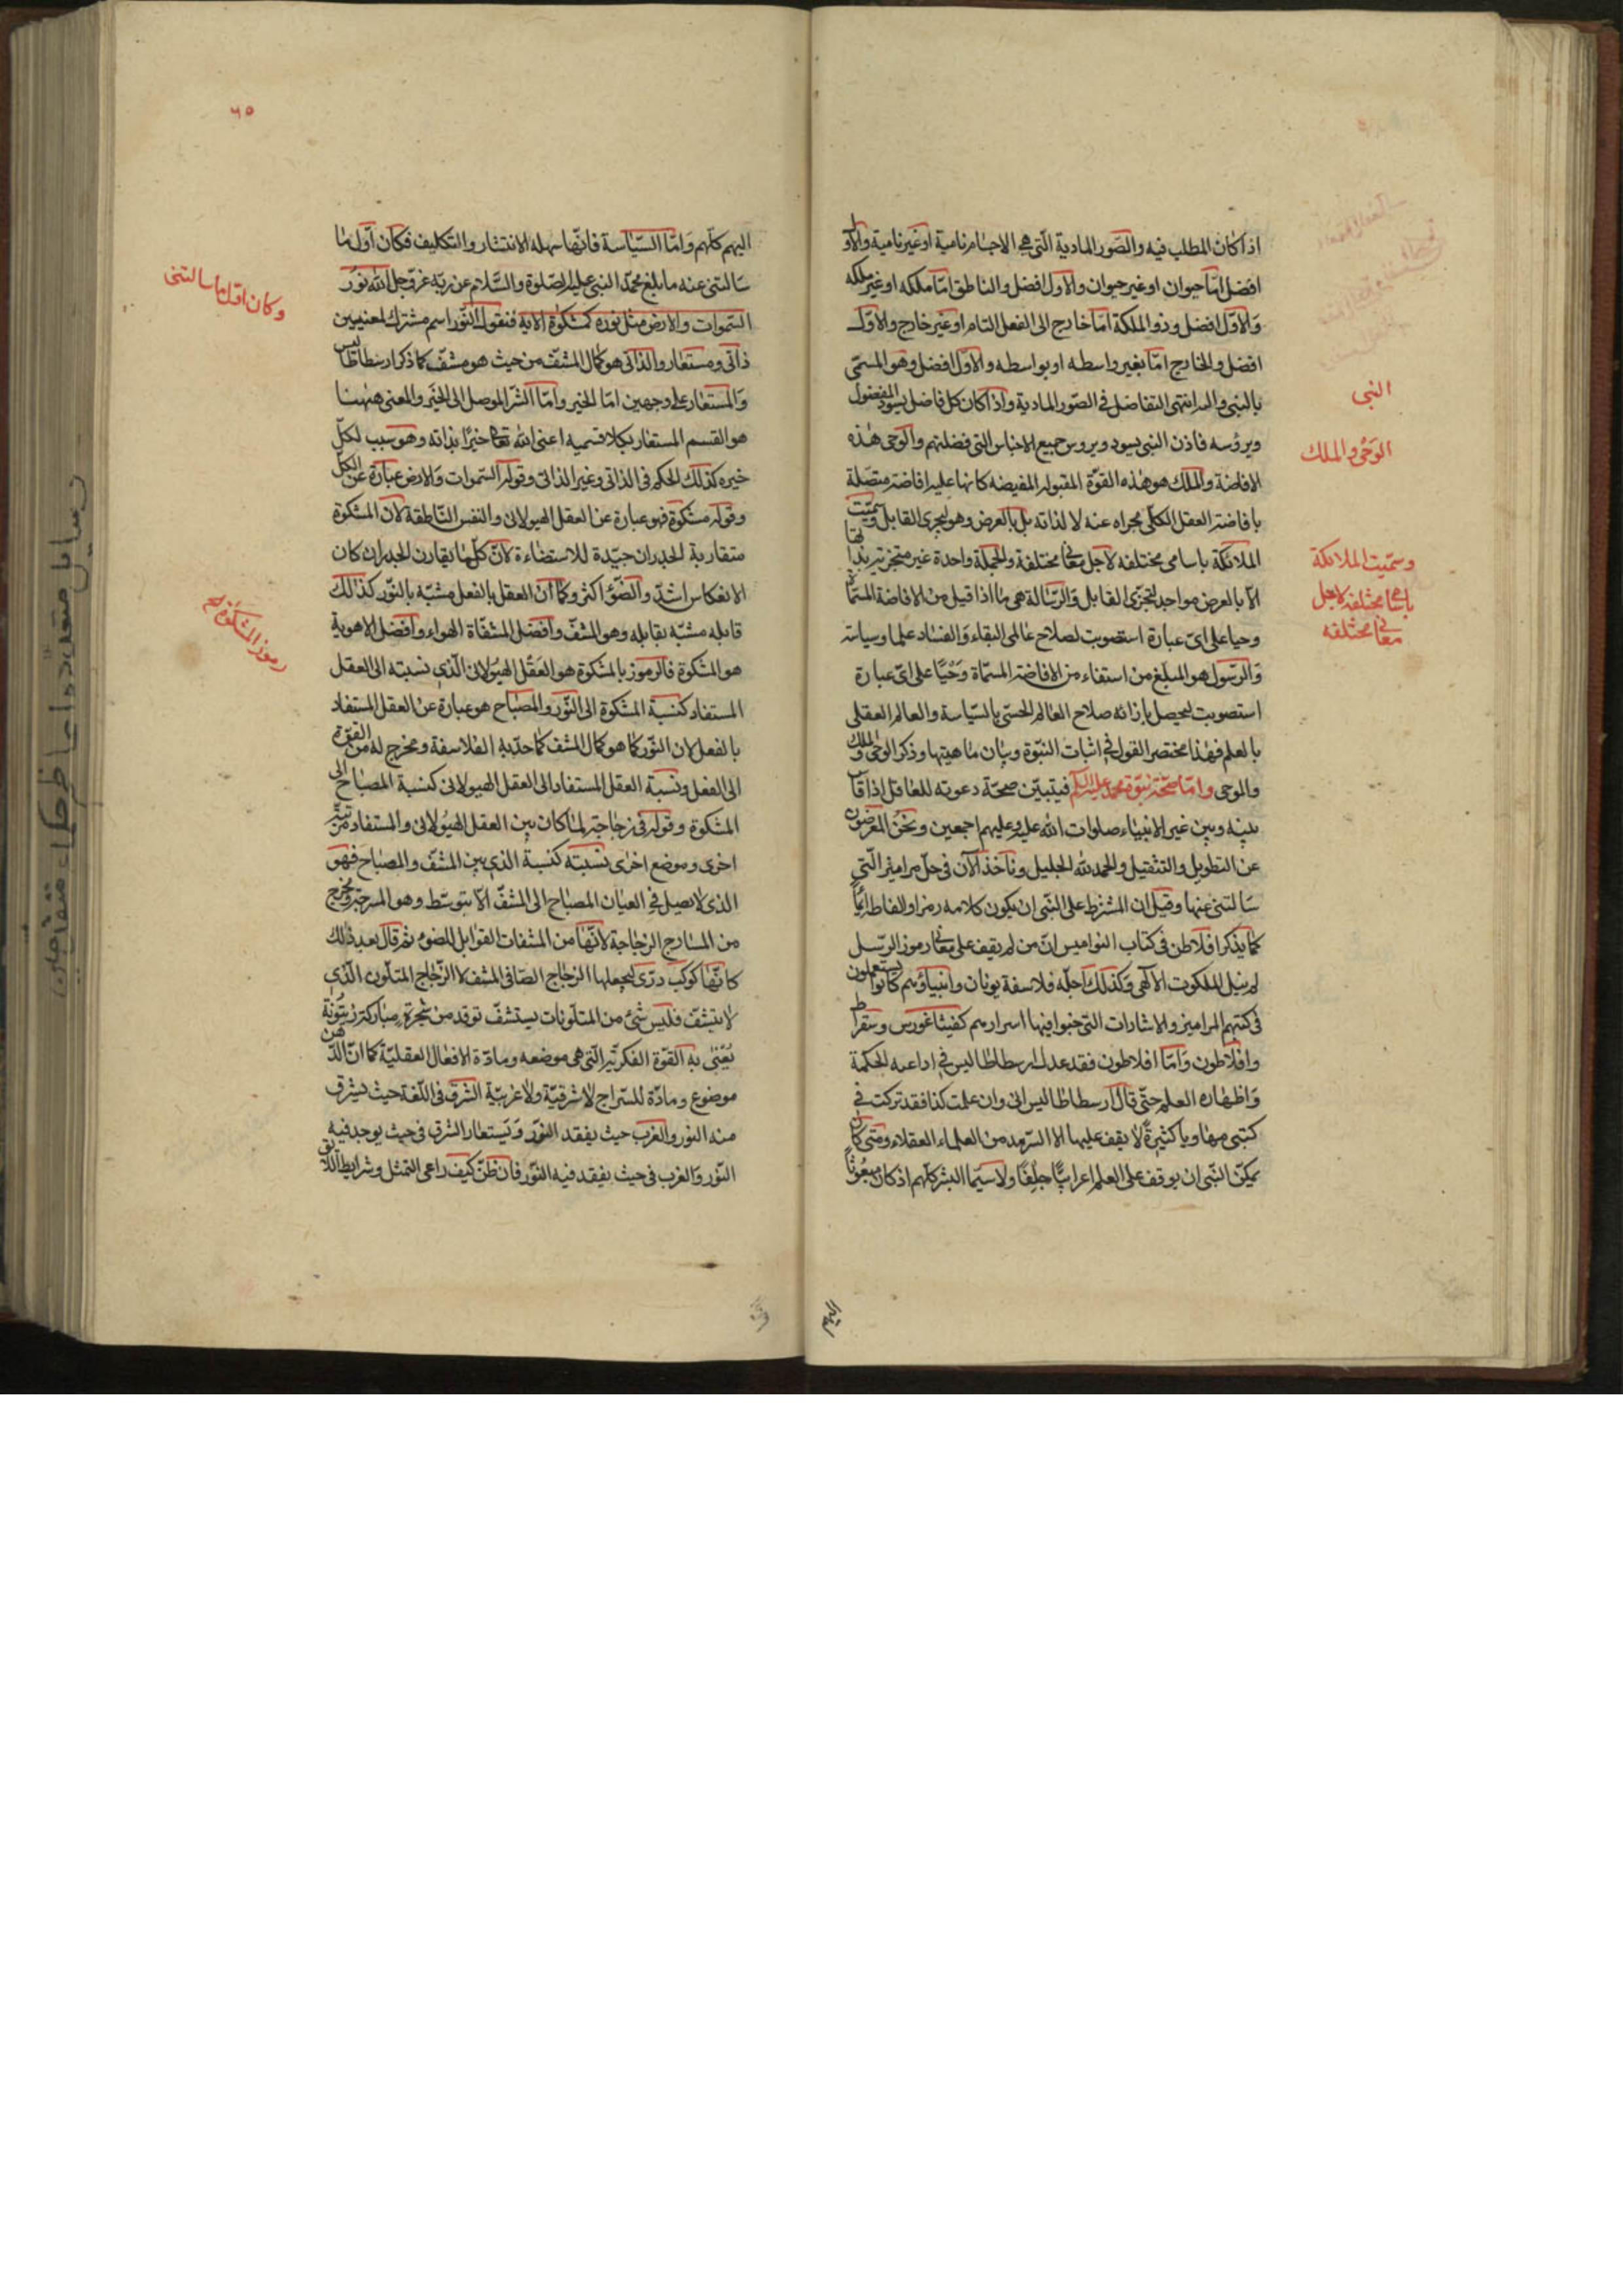 اذا كان المطلب فيه والصور المادية التى هى الاجسام نامية او غير نامية والاول
افضل امّا حيوان او غير حيوان والاول افضل والناطق امّا ملكه او غير ملكه
والاوّل افضل وذو الملكة امّا خارج الى الفعل التام او غير خارج والاوّل
افضل والخارج امّا بغير واسطه او بواسطه والاوّل افضل وهو المسمّى
بالنبى واليه انتهى التفاضل فى الصّور المادية واذا كان كل فاضل يسود المفضول
ويروسه فاذن النبى يسود ويروس جميع الاجناس التى فضلهم والوحى هذه
الافاضة والملك هو هذه القوّة المقبوله المفيضه كانها عليه افاضة متصلة
بافاضة العقل الكلّى مجراه عنه لا لذاته بل بالعرض وهو لتجزى القابل وسمّيت
الملائكة باسامى مختلفه لاجل معانى مختلفة والجملة واحدة غير متجزية بذاتها
الّا بالعرض من اجل تجزّى القابل والرّسالة هى ما اذا قيل من الافاضة المسمّاة
وحيا على اىّ عبارة استصوبت لصلاح عالمى البقاء والفساد علما وسياسة
والرّسول هو المبلّغ من استفاء من الافاضة المسمّاة وَحْيًا على اىّ عبارة
استصوبت ليحصل بارائه صلاح العالم الحسّى بالسّياسة والعالم العقلى
بالعلم فهذا مختصر القول فى اثبات النبّوة وبيان ماهيتها وذكر الوحى والملك
والموحى وامّا صحّة نبوّة محمد عليه السلام فيتبيّن صحّة دعوته للعاقل اذا قاس
بينه وبين غيره الانبياء صلوات الله عليه وعليهم اجمعين ونحن المعرضون
عن التطويل والتثقيل والحمد لله الجليل وناخذ الآن فى حلّ مراميز الّتى
سَالتنى عنها وقيل ان المشترط على النّبى ان يكون كلامه رمزا والفاظه ايمًا
كما يذكر افلاطن فى كتاب النواميس انّ من لم يقف على معانى رموز الرّسل
لم ينل الملكوت الآلهى وكذلك اجلّه فلاسفة يونان وانبياؤهم كانوا يستعملون
فى كتبهم المراميز والاشارات التى خبوا فيها اسرارهم كفيثاغورس وسقراط
وافلاطون وَامّا افلاطون فقد عدل ارسطاطاليس فى اذاعته الحكمة
وَاظهاره العلم حتّى قال ارسطاطاليس انى وان علمت كذا فقد تركت فى
كتبى مهاويا كثيرةً لا يقف عليها الا الشّريد من العلماء العقلاء ومتى كان
يمكن النّبى ان يوقف على العلم اعرابيًّا جِلفًا ولا سيّما البشر كلّهم اذ كان مبعوثًا
النبى
الوَحى والملك
وسمّيت الملائكة
باسامى مختلفه لاجل
معانى مختلفه
اليهم
٦٥
اليهم كلّهم وَامّا السّياسة فانّها سهله الانتشار والتكليف فكان اوّل ما
سَالتنى عنه ما بلغ محمّد النبى عليه الصّلوة والسّلام عن ربّه عزّ وجل الله نُورُ
السّموات والارض مثل نوره كمشكوة الاية فنقول النّور اسم مشترك لمعنيين
ذاتى ومستعار والذاتى هو كمال المشفّ من حيث هو مشفّ كما ذكر ارسطاطاليس
والمستعار على وجهين امّا الخير وامّا الشّر الموصل الى الخير والمعنى ههنا
هو القسم المستعار بكلا قسميه اعنى الله تعالى خيرًا بذاته وهو سبب لكلّ
خيره كذلك الحكم فى الذاتى وغير الذاتى وقوله السّموات والارض عبارة عن الكلّ
وقوله مشكوة فهو عبارة عن العقل الهيولانى والنفس النّاطقة لان المشكوة
متقاربة الجدران جيّدة للاستضاءة لانّ كلّ ما يقارن الجدران كان
الانعكاس اشدّ والضّوء اكثر وكما انّ العقل بالفعل مشبّه بالنّور كذلك
قابله مشبّه بقابله وهو المشفّ وافضل المشفّاة الهواء وافضل الاهوية
هو المشكوة فالرموز بالمشكوة هو العَقْل الهيولانى الّذى نسبته الى العقل
المستفاد كنسبة المشكوة الى النّور والمصباح هو عبارة عن العقل المستفاد
بالفعل لان النّور كما هو كمال المشف كما حدّبه الفلاسفة ومخرج له من القوّة
الى الفعل ونسبة العقل المستفاد الى العقل الهيولانى كنسبة المصباح الى
المشكوة وقوله فى زجاجة لما كان بين العقل الهيُولانى والمستفاد مرتبة
اخرى وموضع اخرى نسبته كنسبة الذى بين المشفّ والمصباح فهو
الذى لا يصل فى العيان المصباح الى المشفّ الّا بتوسّط وهو المسرجة ويخرج
من المسارج الزجاجة لانّها من المشفات القوابل للضوء ثم قال بعد ذلك
كانّها كوكب درّى ليجعلها الزجاج الصّافى المشف لا الزّجاج المتلوّن الّذى
لا يتشفّ فليس شئ من المتلوّنات يستشفّ توقد من شجرة مباركة زيتونة
يُعْنى به القوّة الفكريّة الّتى هى موضعه ومادّة لافعال العقليّة كما انّ الدّهن
موضوع ومادّة للسّراج لا شرقيّة ولا غربيّة الشرق فى اللّغة حيث يشرق
منه النور والغرب حيث يفقد النّور وَيستعار الشرق فى حيث يوجد فيه
النّور وَالغرب فى حيث يفقد فيه النّور فان ظنّ كيف راعى التمثل وشرايط اللّايق
وكان اوّل ما سالتنى
رمز المشكوة
رسايل متعدده از حكماء متفاجرين